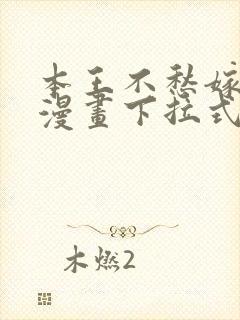 本王不愁嫁
漫畫下拉式
木燃2